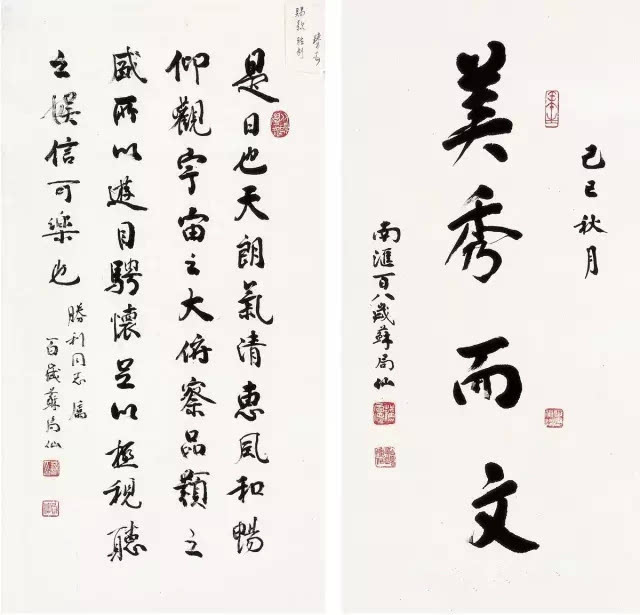 是日也天朗氣清惠風和暢
仰觀宇宙之大俯察品類之
盛所以遊目騁懷足以極視聽
之娛信可樂也
勝利同志屬
百歲蘇局仙
己巳秋月
美秀而文
南滙百八歲蘇局仙